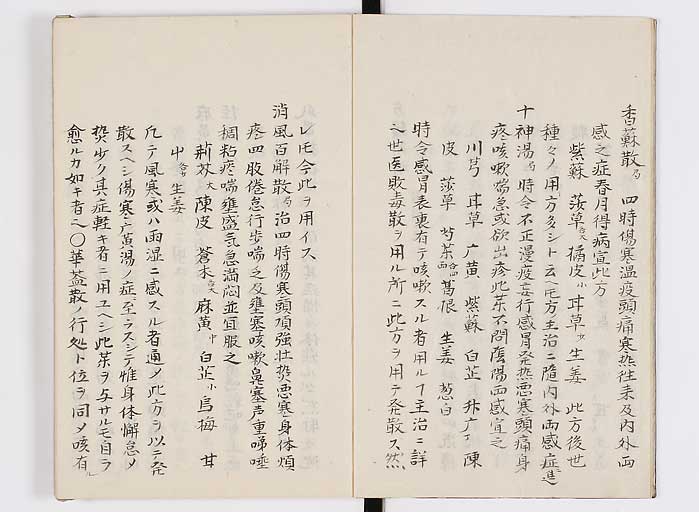 香蘇散局 四時傷寒温疫頭痛寒热往来及内外両
感之症春月得病宜此方
紫蘇 莎草 橘皮小 甘草少 生姜 此方後世
種々ノ用方多シト云ヘ𪜈方主治ニ随内外両感症進
十神湯局 時令不正漫疫妄行感冒発热悪寒頭痛身
疼咳嗽喘急或欲出疹此薬不問陰陽両感宜之
川芎 甘草 广黄 紫蘇 白芷 升广 陳
皮 莎草 芍薬 葛根 生姜 葱白
時令感冒表裏有テ咳嗽スル者用ルヿ主治ニ詳
世医敗毒散ヲ用ル所ニ此方ヲ用テ発散ス然
レ𪜈今此ヲ用イス
消風百解散局 治四時傷寒頭項強壮热悪寒身体煩
疼四肢倦怠行歩喘乏及壅塞咳嗽鼻塞声重啼唾
稠粘痰喘壅盛气急満悶並宜服之
荊芥大 陳皮 蒼朮 麻黄中 白芷小 烏梅 甘
中 生姜
凡テ風寒或ハ雨湿ニ感スル者通メ此方ヲ以テ発
散スヘシ傷寒广黄湯ノ症ニ至ラスシテ惟身体懈怠メ
热少ク其症軽キ者ニ用ユヘシ此薬ヲ与サルモ自ラ
愈ルカ如キ者 〇華蓋散ノ行処ト位ヲ同メ咳有